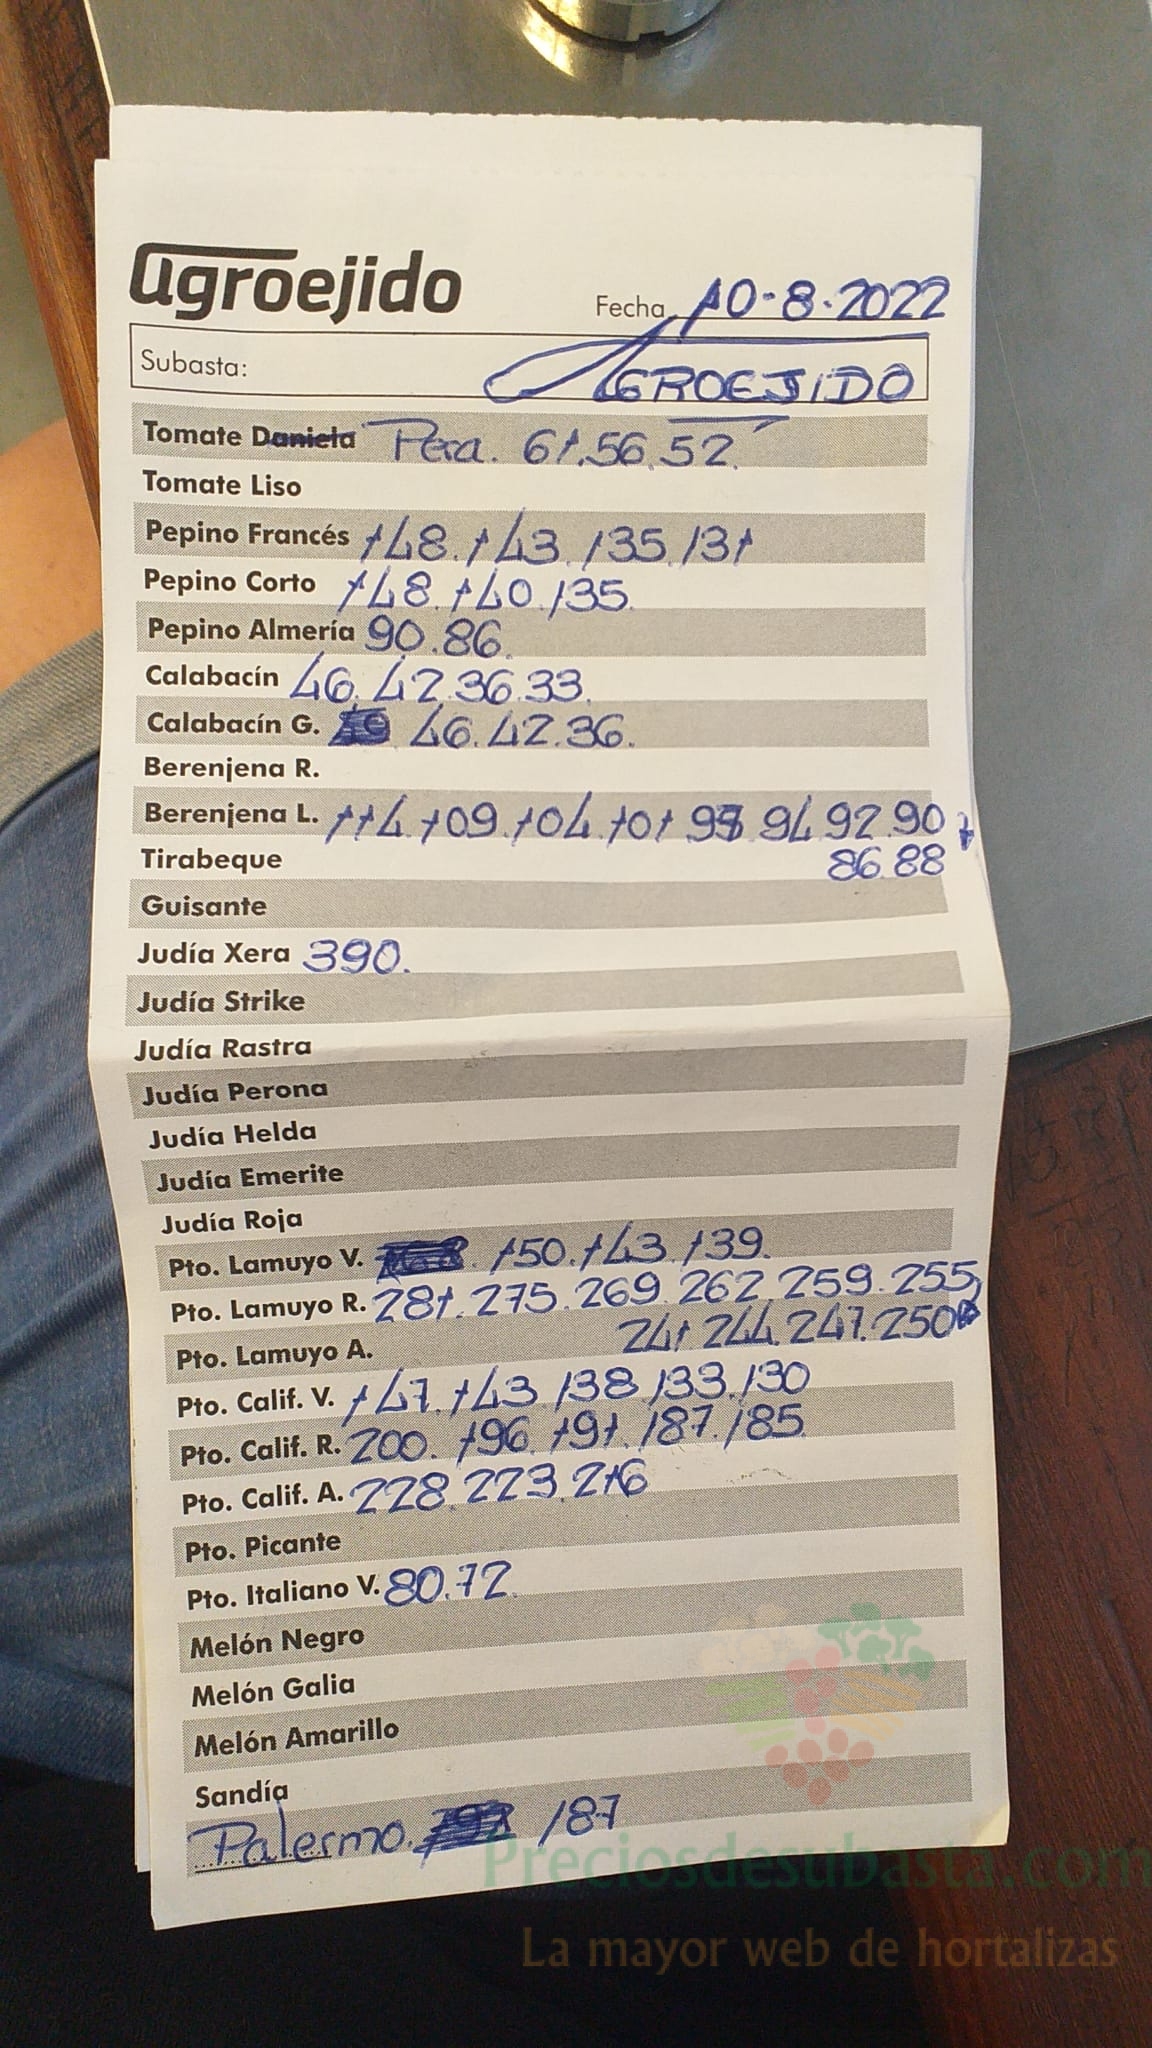 agroejido
Fecha 10-8-2022
Subasta: AGROEJIDO
Tomate Daniela Pera. 61.56.52.
Tomate Liso
Pepino Francés 148.143.135.131
Pepino Corto 148.140.135.
Pepino Almería 90.86.
Calabacín 46.42.36.33.
Calabacín G. 46.42.36.
Berenjena R.
Berenjena L. 114.109.104.101 98 94 92.90
Tirabeque 86.88
Guisante
Judía Xera 390.
Judía Strike
Judía Rastra
Judía Perona
Judía Helda
Judía Emerite
Judía Roja
Pto. Lamuyo V. 150.143.139.
Pto. Lamuyo R. 281.275.269.262.259.255
Pto. Lamuyo A. 241 244.247.250
Pto. Calif. V. 147.143.138.133.130
Pto. Calif. R. 200.196.191.187.185
Pto. Calif. A. 228.223.216
Pto. Picante
Pto. Italiano V. 80.72.
Melón Negro
Melón Galia
Melón Amarillo
Sandía
Palermo. 187
Preciosdesubasta.com
La mayor web de hortalizas